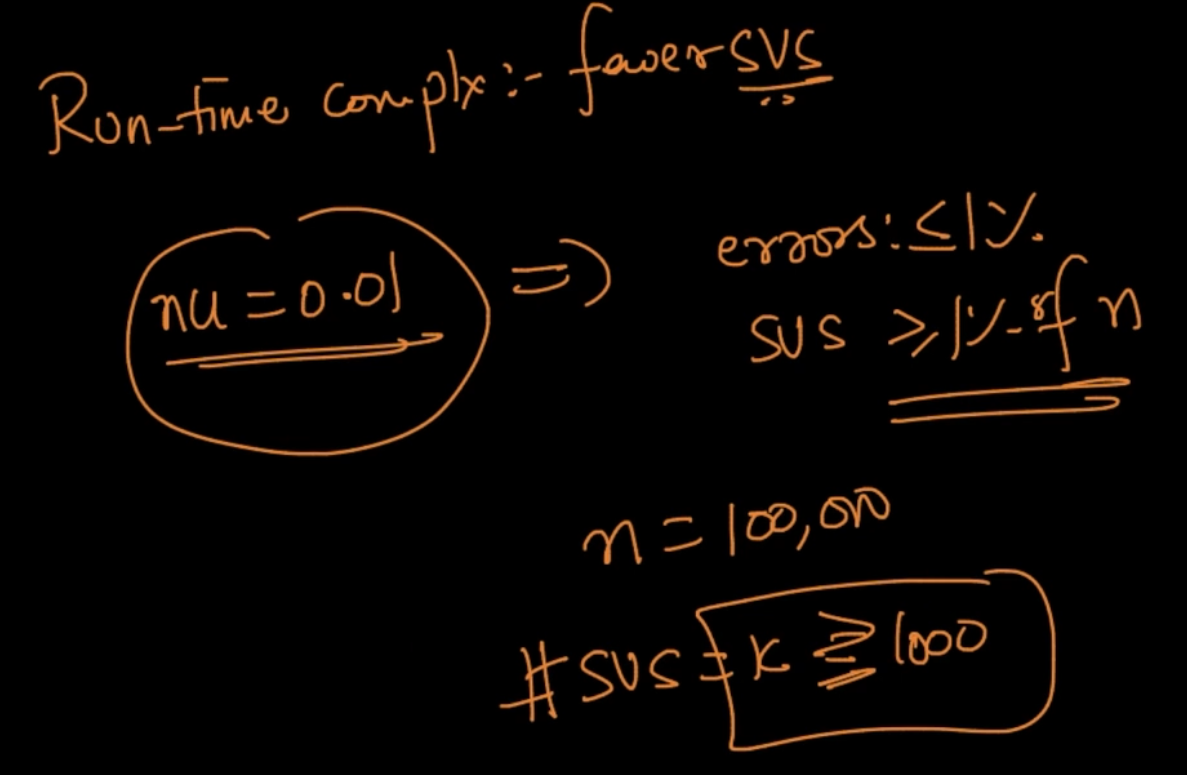 Run-time complx:- fewer SVS
nu = 0.01 => errors: ≤ 1%.
SVS ≥ 1% of n
n = 100,000
#SVS = K ≥ 1000